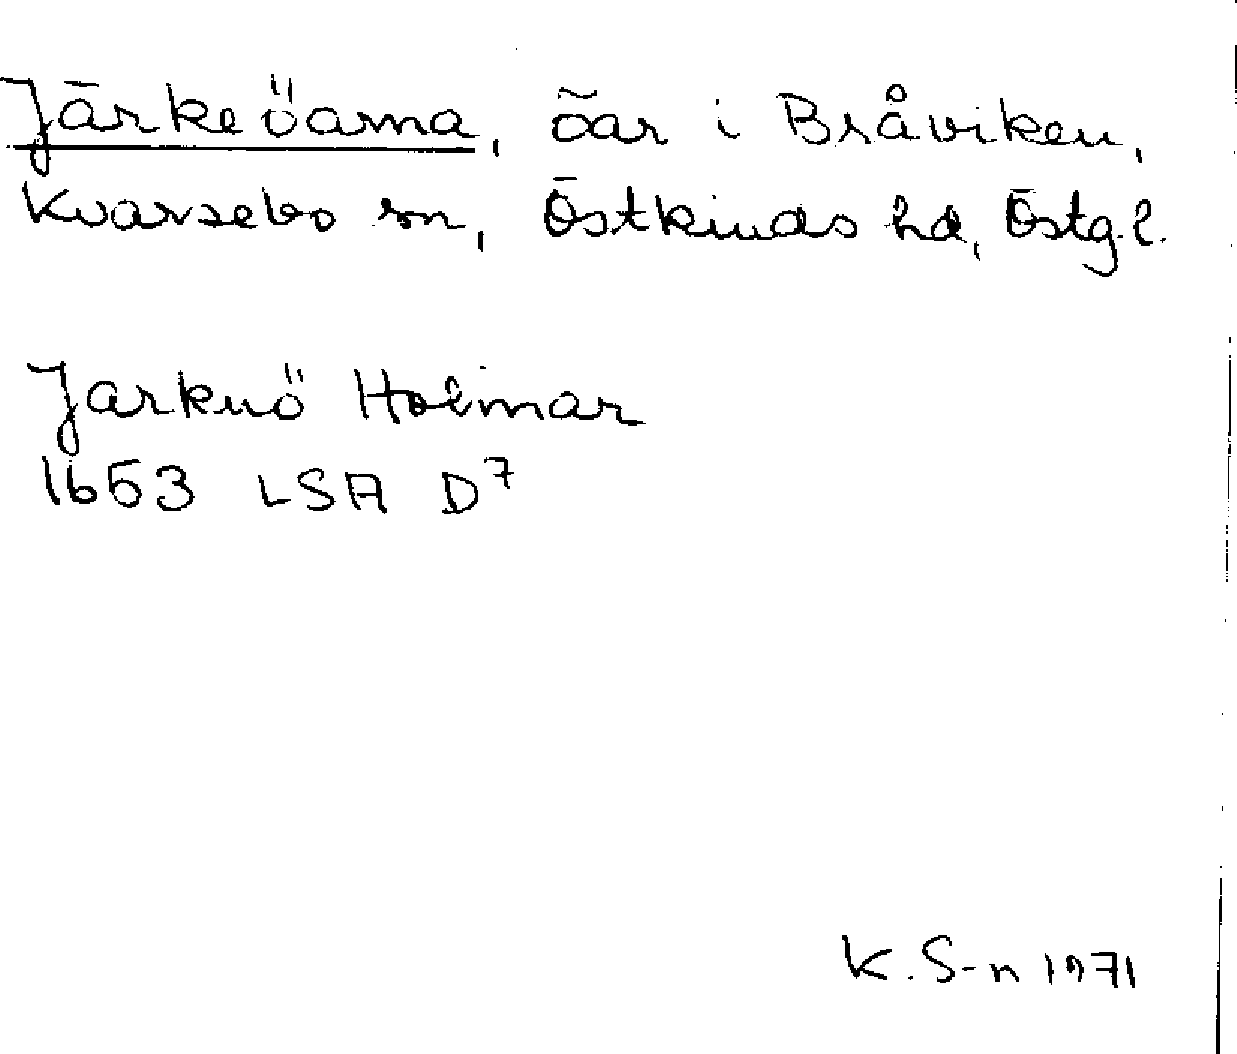 Järkeöarna, öar i Bråviken,
Kvarsebo sn, Östkinds hd, Östg.l.
Jarknö Holmar
1653 LSA D7
K. S-n 1971